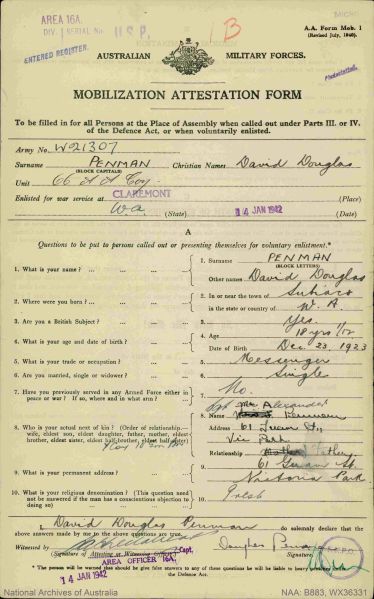 AREA 16A.
DIV. SERIAL No. U.S.P.
1B
A.A. Form Mob. 1
(Revised July, 1940).
ENTERED REGISTER.
AUSTRALIAN MILITARY FORCES.
MOBILIZATION ATTESTATION FORM
To be filled in for all Persons at the Place of Assembly when called out under Parts III. or IV.
of the Defence Act, or when voluntarily enlisted.
Army No. W21307
Surname PENMAN Christian Names David Douglas
(BLOCK CAPITALS)
Unit 66 A A Coy
Enlisted for war service at CLAREMONT (Place)
W.A. (State) 14 JAN 1942 (Date)
A
Questions to be put to persons called out or presenting themselves for voluntary enlistment.*
1. What is your name? 1. Surname PENMAN
(BLOCK LETTERS)
Other names David Douglas
2. Where were you born? 2. In or near the town of Subiaco
in the state or country of W. A.
3. Are you a British Subject? 3. Yes
4. What is your age and date of birth? 4. Age 18 yrs 1/12
Date of Birth Dec 23, 1923
5. What is your trade or occupation? 5. Messenger
6. Are you married, single or widower? 6. Single
7. Have you previously served in any Armed Force either in peace or war? If so, where and in what arm? 7. No.
8. Who is your actual next of kin? (Order of relationship.—
wife, eldest son, eldest daughter, father, mother, eldest
brother, eldest sister, eldest half-brother, eldest half sister)
8. Name Mr Alexander Penman
Address 61 Swan St,
Vic Park
Relationship Mother Father
9. What is your permanent address? 9. 61 Swan St.
Victoria Park
10. What is your religious denomination? (This question need
not be answered if the man has a conscientious objection to
doing so)
10. Presb
I, David Douglas Penman do solemnly declare that the
above answers made by me to the above questions are true.
Witnessed by Capt. Douglas Penman
(Signature of Attesting or Witnessing Officer) (Signature
AREA OFFICER 16A.
14 JAN 1942
* The person will be warned that should he give false answers to any of these questions he will be liable to heavy penalties under
the Defence Act.
National Archives of Australia
NAA: B883, WX36331